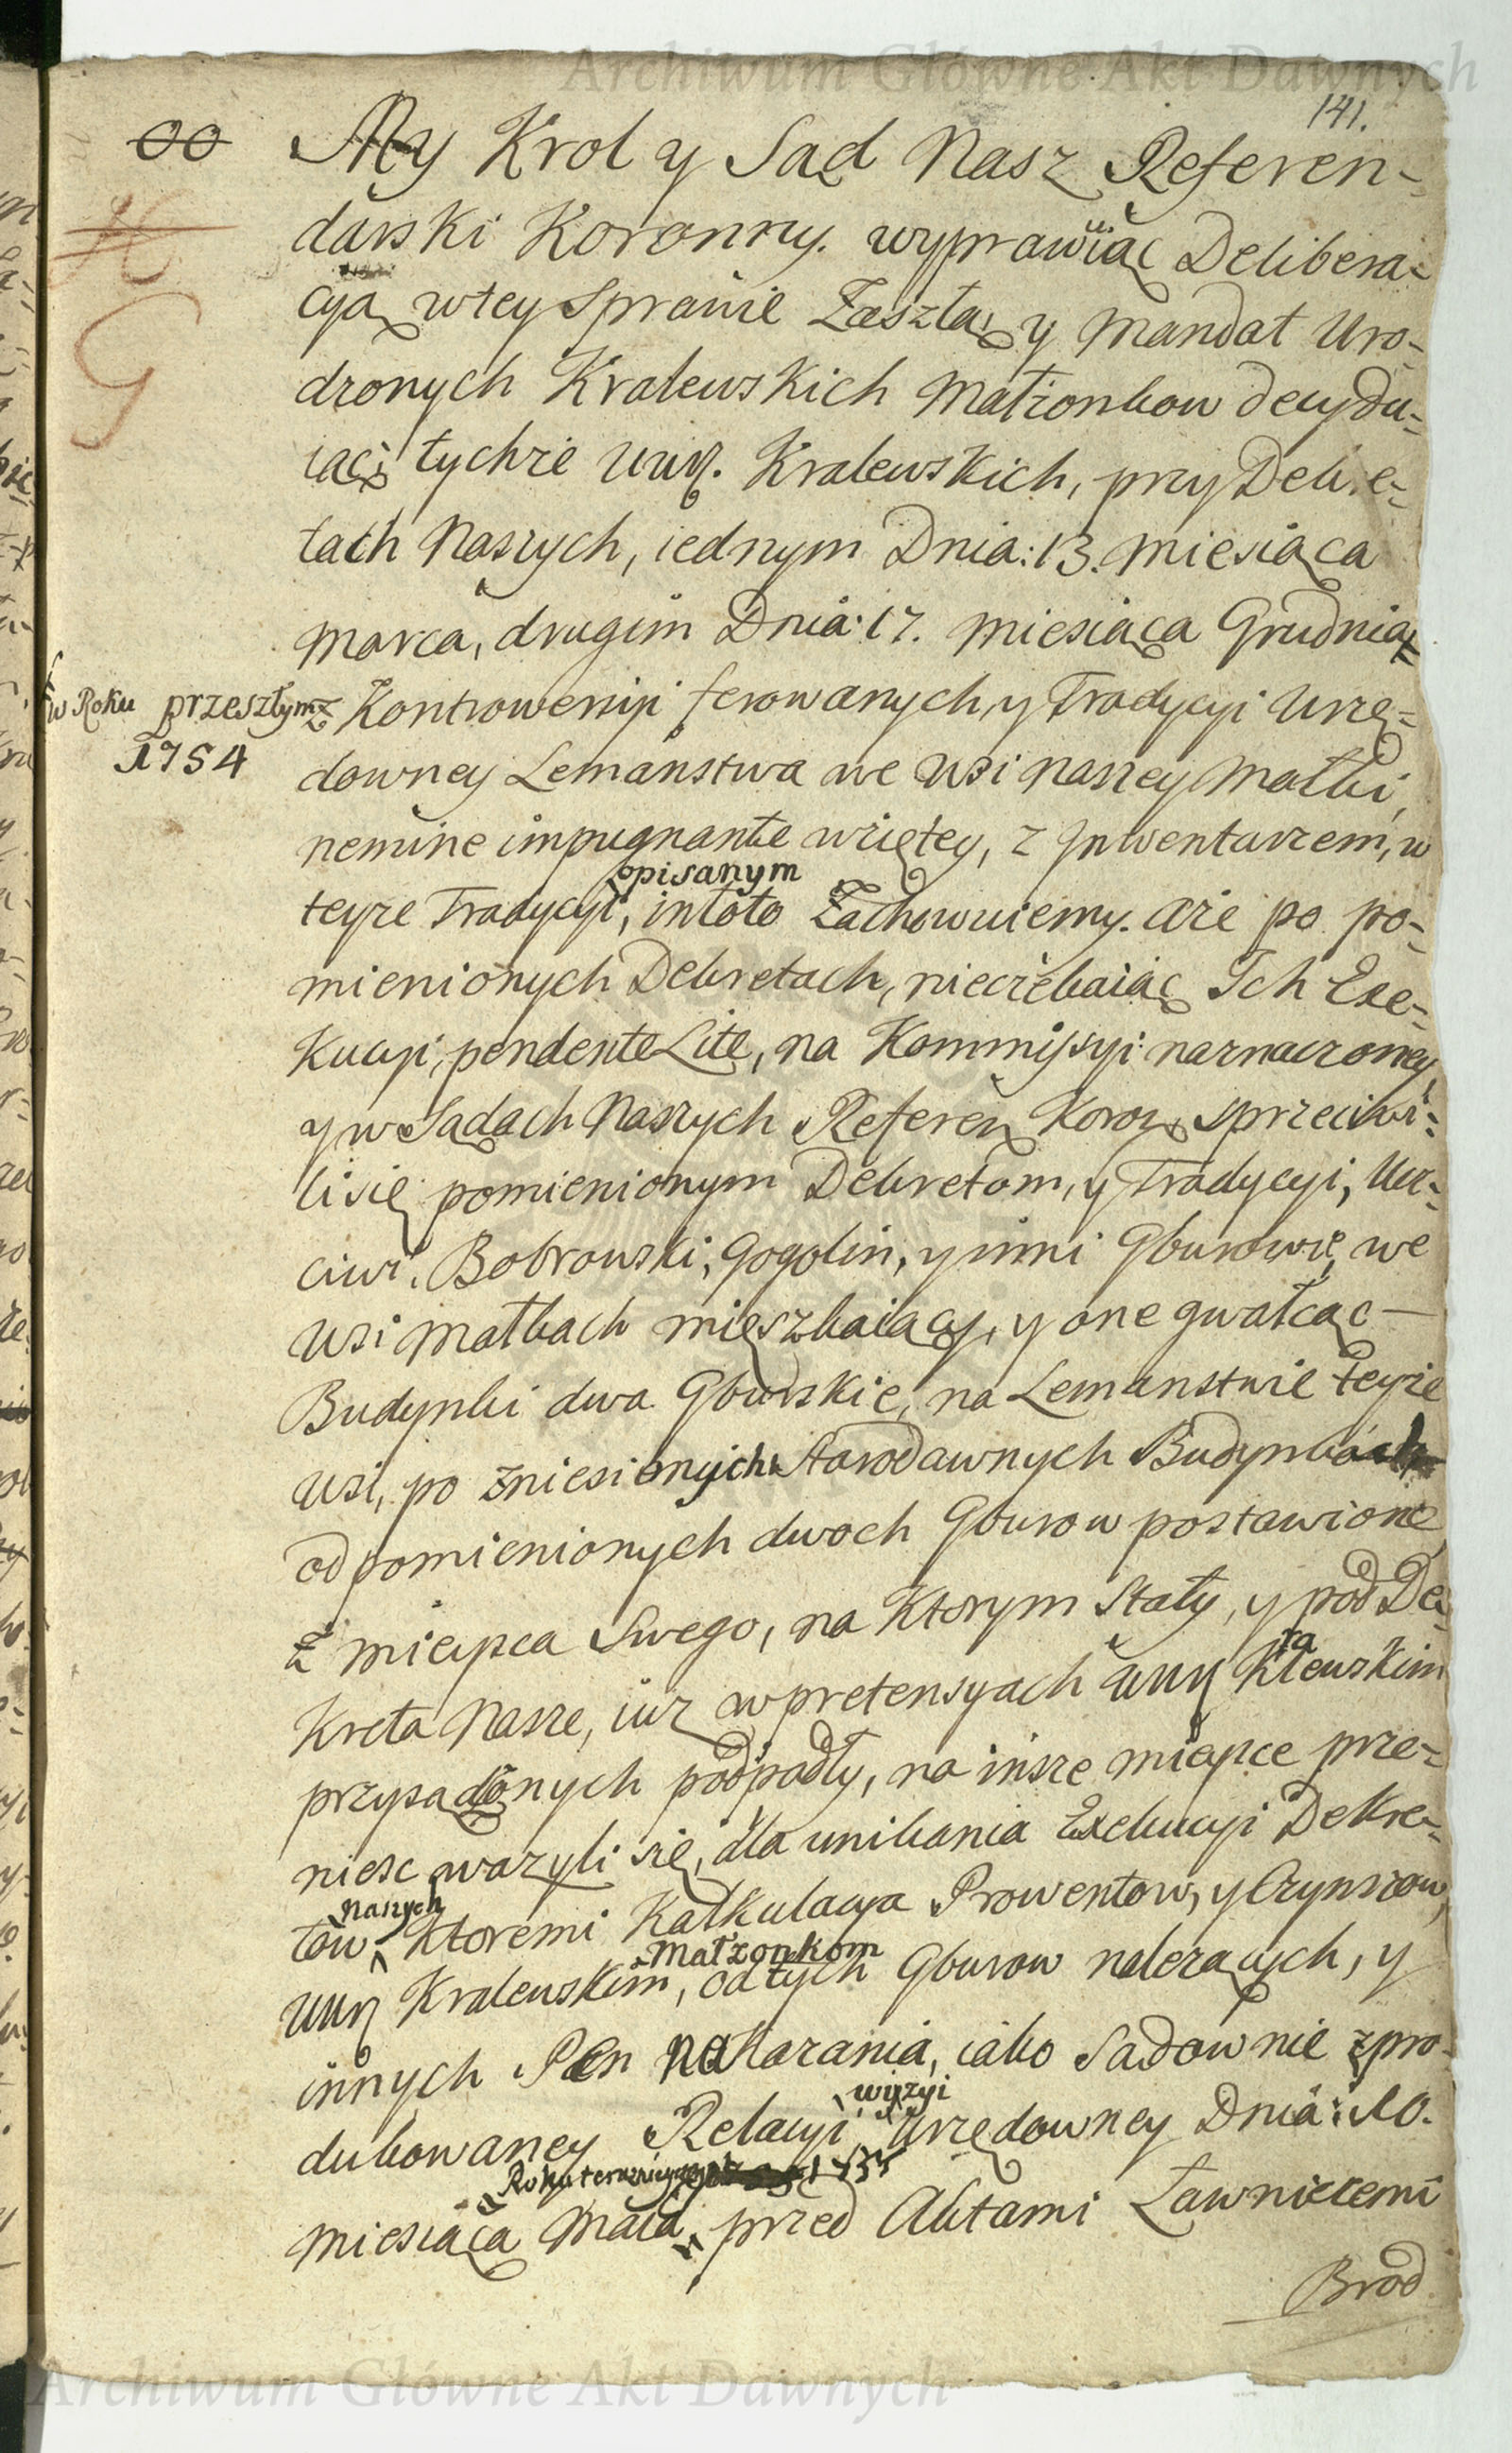 Archiwum Główne Akt Dawnych
141.
My Krol y Sąd Nasz Referen-
darski Koronny. wyprawuiąc Delibera-
cyą w tey Sprawie Zaszłą, y Mandat Uro-
dzonych Kralewskich Małżonkow decydu-
iąc, tychże Uuȓ. Kralewskich, przy Dekre-
tach Naszych, iednym Dnia: 13. Miesiąca
Marca, drugim Dnia: 17. Miesiąca Grudnia
w Roku przeszłym
1754
z Kontrowersyi ferowanych, y Tradycyi Urzę-
downey Lemanstwa we Wsi naszey Małki,
nemine impugnante wziętey, z Inwentarzem, w
opisanym
teyże Tradycyi, in toto Zachowuiemy. aże po po-
mienionych Dekretach, nieczekaiąc Ich Exe-
kucyi, pendente Lite, na Kommissyi naznaczoney,
y w Sądach Naszych Referen Koron, sprzeciwi-
li się pomienionym Dekretom, y Tradycyi, Ucz-
ciwi, Bobrowski, Gogolin, y inni Gburowie, we
Wsi Małkach mieszkaiący, y one gwałcąc
Budynki dwa Gburskie, na Lemanstwie teyże
Wsi, po zniesionych Starodawnych Budynkach
od pomienionych dwoch Gburow postawione,
z mieysca Swego, na Ktorym Stały, y pod De-
ra
Kreta Nasze, iuż w pretensyach Uuȓ Klewskim
przysądzonych podpadły, na insze mieysce prze-
niesc ważyli się, dla unikania Exekucyi Dekre-
naszych
tow Ktoremi Kalkulacya Prowentow, y Czynszow,
Małżonkom
Uuȓ Kralewskim, od tych Gburow należących, y
innych Pen nakazania, iako Sadownie zpro-
wizyi
dukowaney Relacyi Urzędowney Dnia: 10.
Roku teraznieyszego 1755
Miesiąca Maia, przed Aktami Ławniczemi
Brod
Archiwum Główne Akt Dawnych